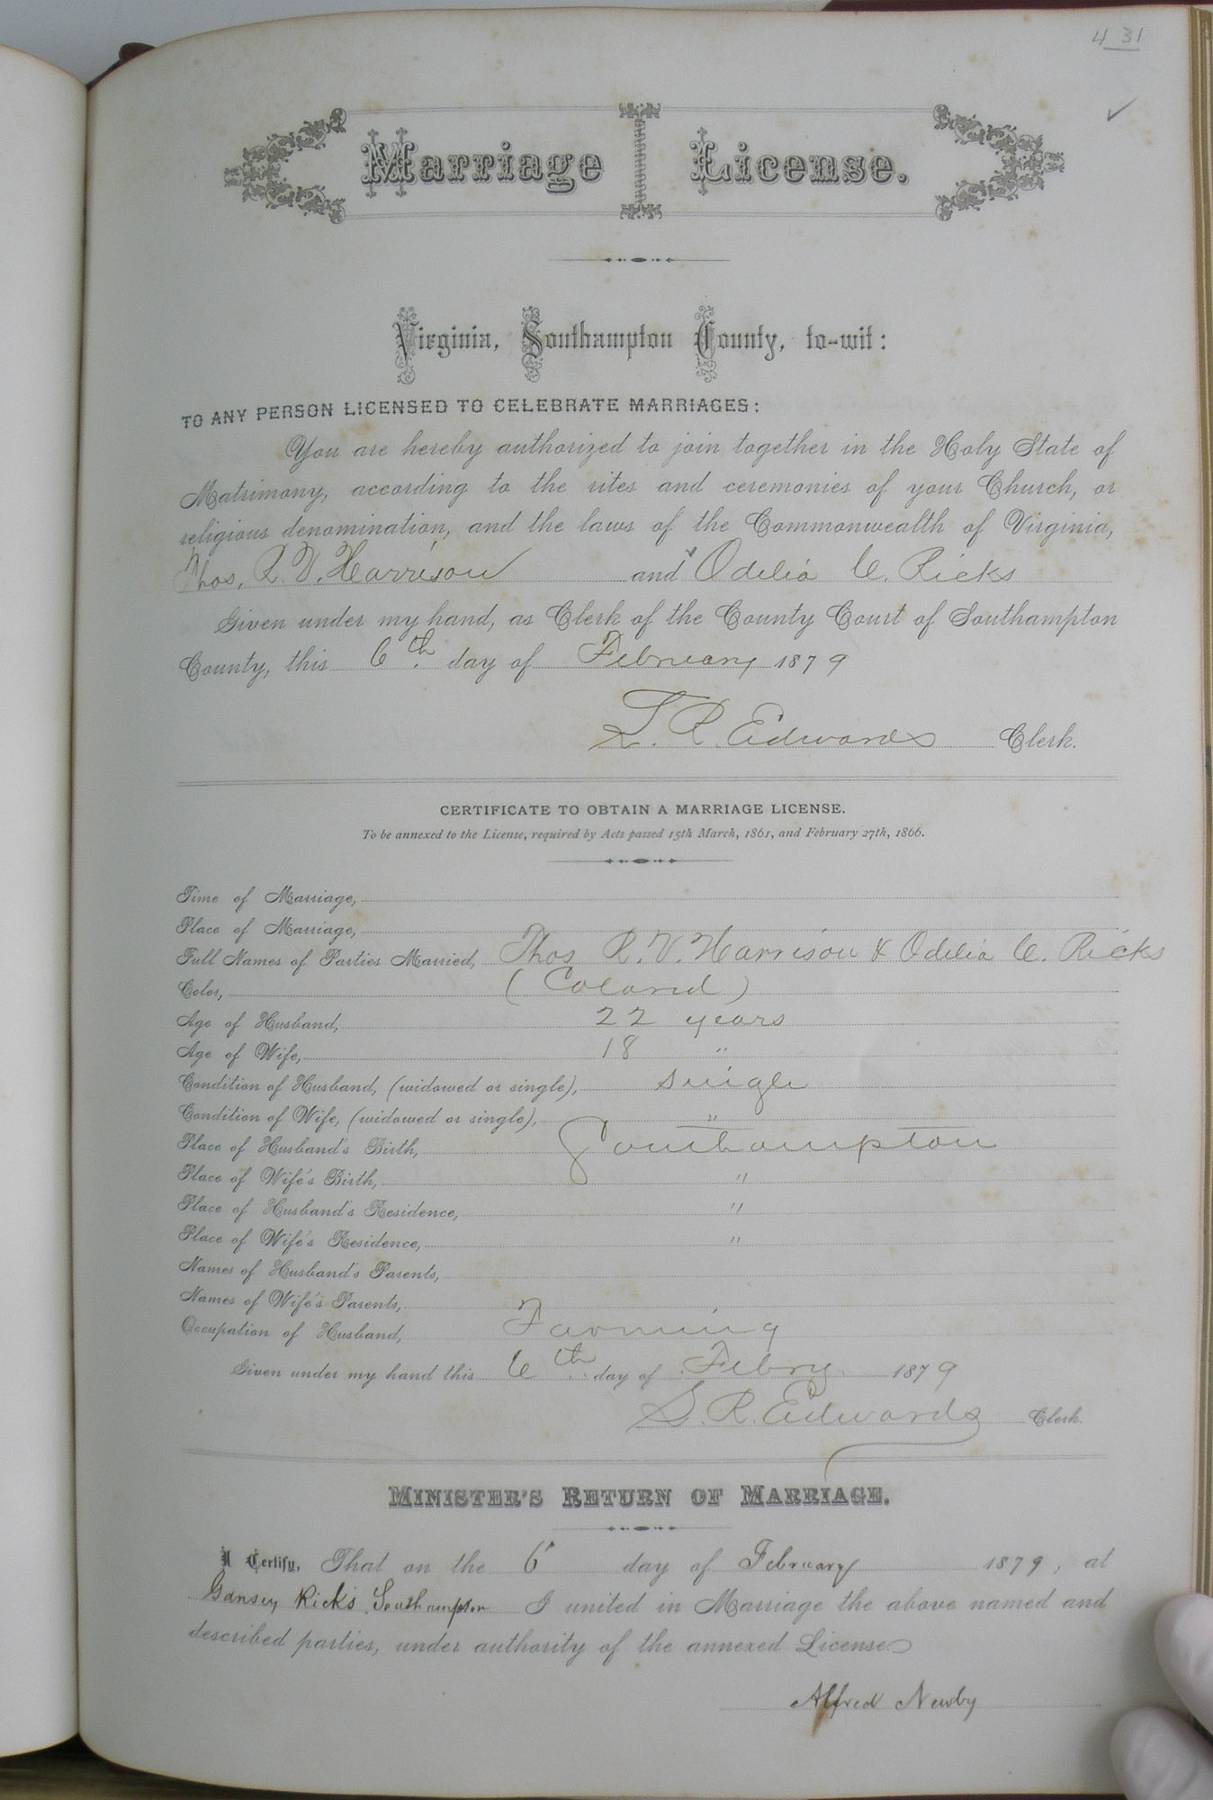 4 31
✓
Marriage License.
Virginia, Southampton County, to-wit:
TO ANY PERSON LICENSED TO CELEBRATE MARRIAGES:
You are hereby authorized to join together in the Holy State of
Matrimony, according to the rites and ceremonies of your Church, or
religious denomination, and the laws of the Commonwealth of Virginia,
Thos. R. V. Harrison and Odelia C. Ricks
Given under my hand, as Clerk of the County Court of Southampton
County, this 6th. day of February 1879
L. R. Edwards Clerk.
CERTIFICATE TO OBTAIN A MARRIAGE LICENSE.
To be annexed to the License, required by Acts passed 15th March, 1861, and February 27th, 1866.
Time of Marriage,
Place of Marriage,
Full Names of Parties Married, Thos R. V. Harrison & Odelia C. Ricks
Color, (Colored)
Age of Husband, 22 years
Age of Wife, 18 "
Condition of Husband, (widowed or single), Single
Condition of Wife, (widowed or single), "
Place of Husband's Birth, Southampton
Place of Wife's Birth, "
Place of Husband's Residence, "
Place of Wife's Residence, "
Names of Husband's Parents,
Names of Wife's Parents,
Occupation of Husband, Farming
Given under my hand this 6th. day of Febry. 1879
L. R. Edwards Clerk.
MINISTER'S RETURN OF MARRIAGE.
I Certify, That on the 6 day of February 1879, at
Ricks Southampton I united in Marriage the above named and
described parties, under authority of the annexed License
Alfred Newby